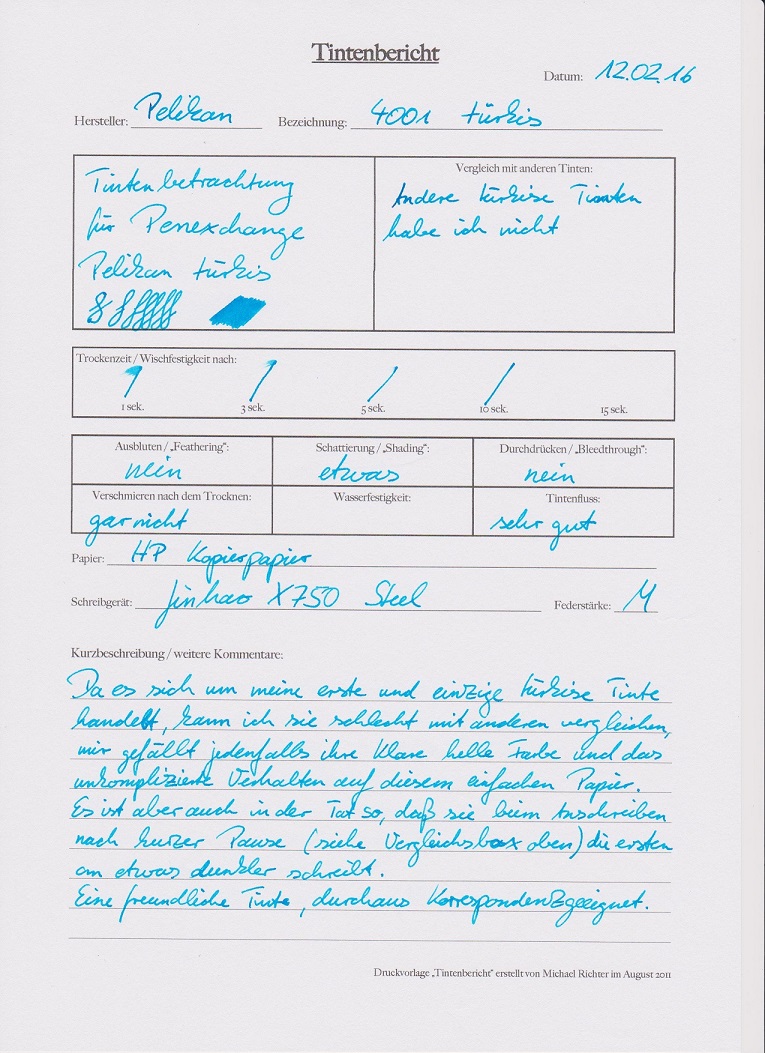 Tintenbericht
Datum: 12.02.16
Hersteller: Pelikan Bezeichnung: 4001 türkis
Tintenbetrachtung
für Penexchange
Pelikan türkis
Vergleich mit anderen Tinten:
Andere türkise Tinten
habe ich nicht
Trockenzeit / Wischfestigkeit nach:
1 sek. 3 sek. 5 sek. 10 sek. 15 sek.
Ausbluten / „Feathering": Schattierung / „Shading": Durchdrücken / „Bleedthrough":
nein etwas nein
Verschmieren nach dem Trocknen: Wasserfestigkeit: Tintenfluss:
gar nicht sehr gut
Papier: HP Kopierpapier
Schreibgerät: Jinhao X750 Steel Federstärke: M
Kurzbeschreibung / weitere Kommentare:
Da es sich um meine erste und einzige türkise Tinte
handelt, kann ich sie schlecht mit anderen vergleichen,
mir gefällt jedenfalls ihre klare helle Farbe und das
unkomplizierte Verhalten auf diesem einfachen Papier.
Es ist aber auch in der Tat so, daß sie beim Anschreiben
nach kurzer Pause (siehe Vergleichsbox oben) die ersten
cm etwas dunkler schreibt.
Eine freundliche Tinte, durchaus Korrespondenzgeeignet.
Druckvorlage „Tintenbericht" erstellt von Michael Richter im August 2011